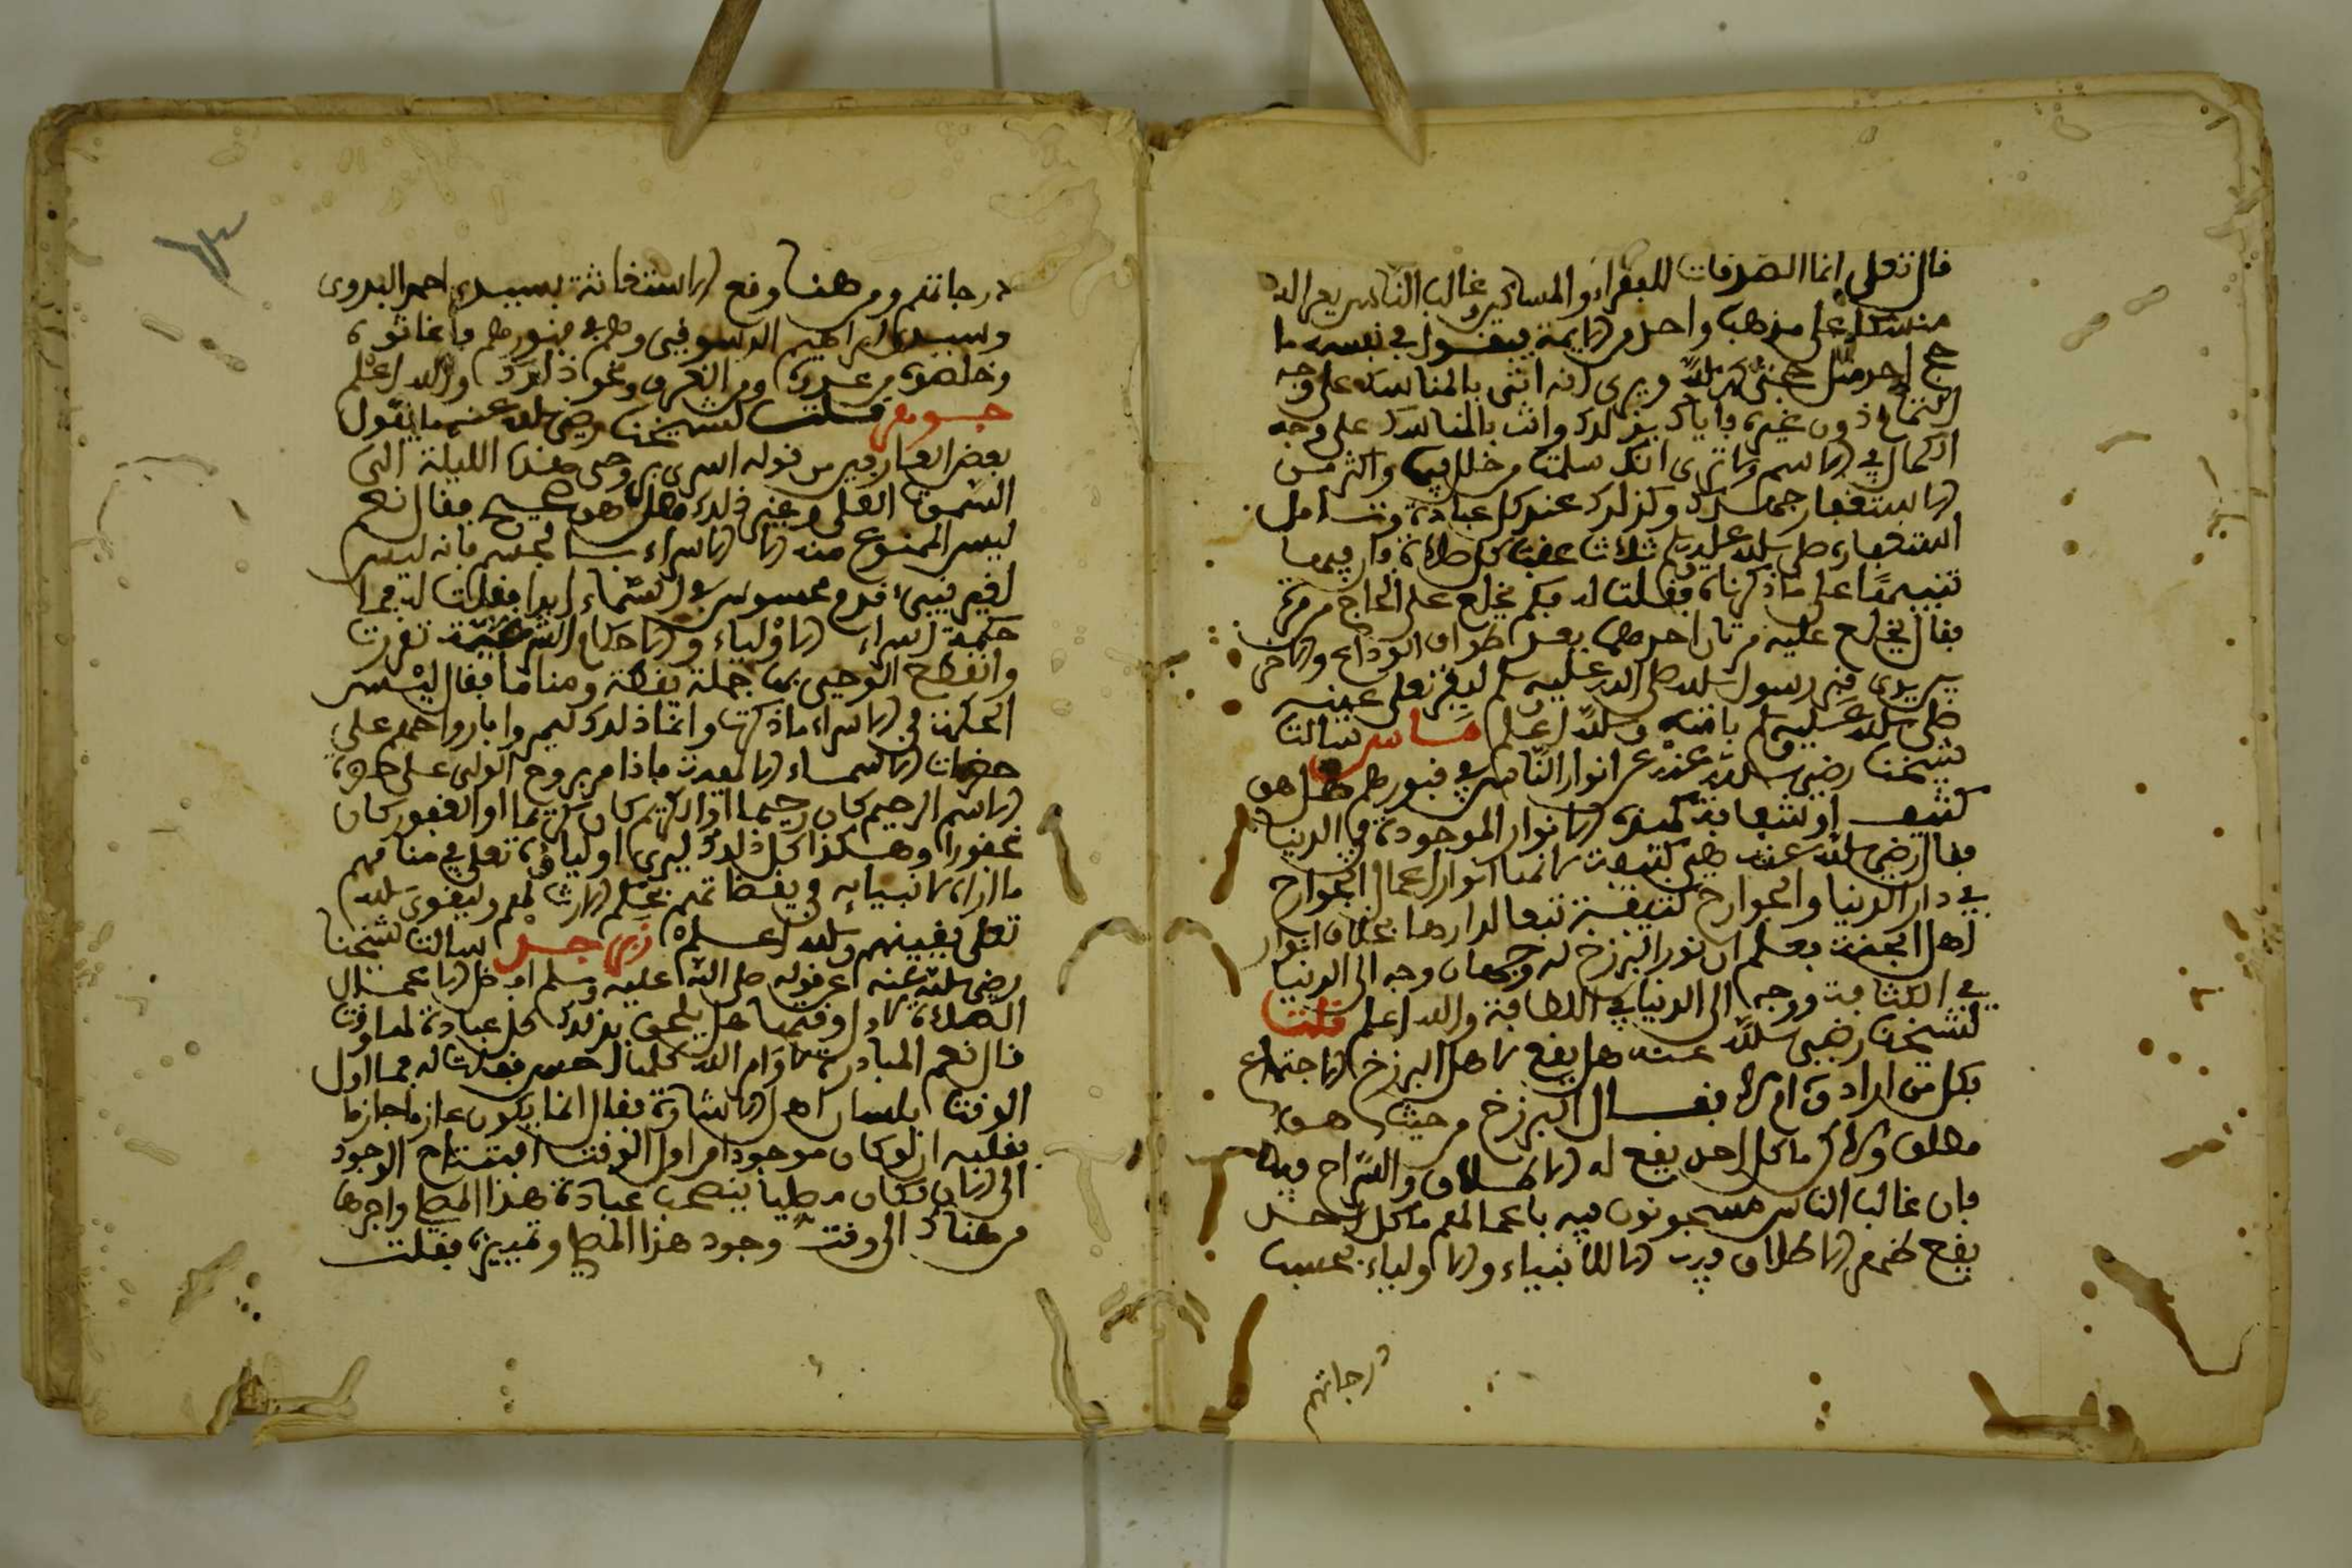 قال تعلى انما الصدقات للفقراء والمساكين غالب الناس يعبد الله
منشكا على مذهب واحد من الايمة فيقول في نفسه ما
حج احد مثل حجتي كاملا ويرى انه اتى بالمناسك على وجه
الكمال دون غيره فاياك وذلك وائت بالمناسك على وجه
الكمال في الاسم ولا ترى انك سلمت من خلل فيها واكثر من
الاستغفار جملك وكذلك عند كل عبادة وتامل
استغفاره صلى الله عليه وسلم ثلاث عقب كل صلاة وان فيها
تنبيها على ما ذكرناه فقلت له فكم يخلع على الحاج من مرة
فقال يخلع عليه مرتان احدهما بعد طواف الوداع والاخرى
بين يدي قبر رسول الله صلى الله عليه وسلم ليقر تعلى عينه
صلى الله عليه وسلم بامته والله اعلم ماس سالت
شيخنا رضي الله عنه عن انوار الناس في قبورهم هل هي
كثيفة او شفافة كهذه الانوار الموجودة في الدنيا
فقال رضي الله عنه هي كثيفة لانها انوار اعمال الجوارح
في دار الدنيا والجوارح كثيفة تبعا لدارها بخلاف انوار
اهل الجنة فعلم ان نور البرزخ له وجهان وجه الى الدنيا
في الكثافة ووجه الى الدنيا في اللطافة والله اعلم قلت
لشيخنا رضي الله عنه هل يقع لاهل البرزخ الاجتماع
بكل من ارادوه ام لا فقال البرزخ من حيث هو
مطلق ولاكن ما كل احد يقع له الاطلاق والسراح فيه
فان غالب الناس مسجونون فيه باعمالهم ما كل احد
يقع لهم الاطلاق فيه الا للانبياء والاولياء بحسب
درجاتهم
درجاتهم ومن هنا وقع الاستغاثة بسيدي احمد البدوي
وسيدي ابراهيم الدسوقي وهم في قبورهم فاغاثوه
وخلصوه من عدوه ومن الغرق ونحو ذلك والله اعلم
جوهر قلت لشيخنا رضي الله عنه ما تقول
بعض العارفين من قوله اسرى بروحي هذه الليلة الى
السموات العلى وغير ذلك فهل هو صحيح فقال نعم
ليس الممنوع منه الا الاسراء بالجسم فانه ليس
لغير نبيء قدم محسوس في السماء ابدا فقلت له فما
حكمة اسراء الاولياء والاحكام الشرعية تقررت
وانقطع الوحي بها جملة يقظة ومناما فقال ليس
الحكمة في الاسراء ما ذكرت وانما ذلك ليمروا بارواحهم على
حضرات الاسماء الالهية فاذا مر بروح الولي على حضرة
الاسم الرحيم كان رحيما او الكريم كان كريما او الغفور كان
غفورا وهكذا كل ذلك ليرى اولياؤه تعلى في منامهم
ما اراه لانبيايه في يقظاتهم بحكم الارث لهم وليقوى الله
تعلى يقينهم والله اعلم زبرجد سالت شيخنا
رضي الله عنه عن قوله صلى الله عليه وسلم افضل الاعمال
الصلاة لاول وقتها هل يلحق بذلك كل عبادة لها وقت
قال نعم المبادرة لاوامر الله كلها احسن فقلت له فما اول
الوقت بلسان اهل الاشارة فقال انما يكون عازما جازما
بقلبه ان لو كان موجودا من اول الوقت افتتاح الوجود
الى الان لكان مصليا ينصحب عبادة هذا المصلي واجرها
من هناك الى وقت وجود هذا المصلي وتمييزه فقلت